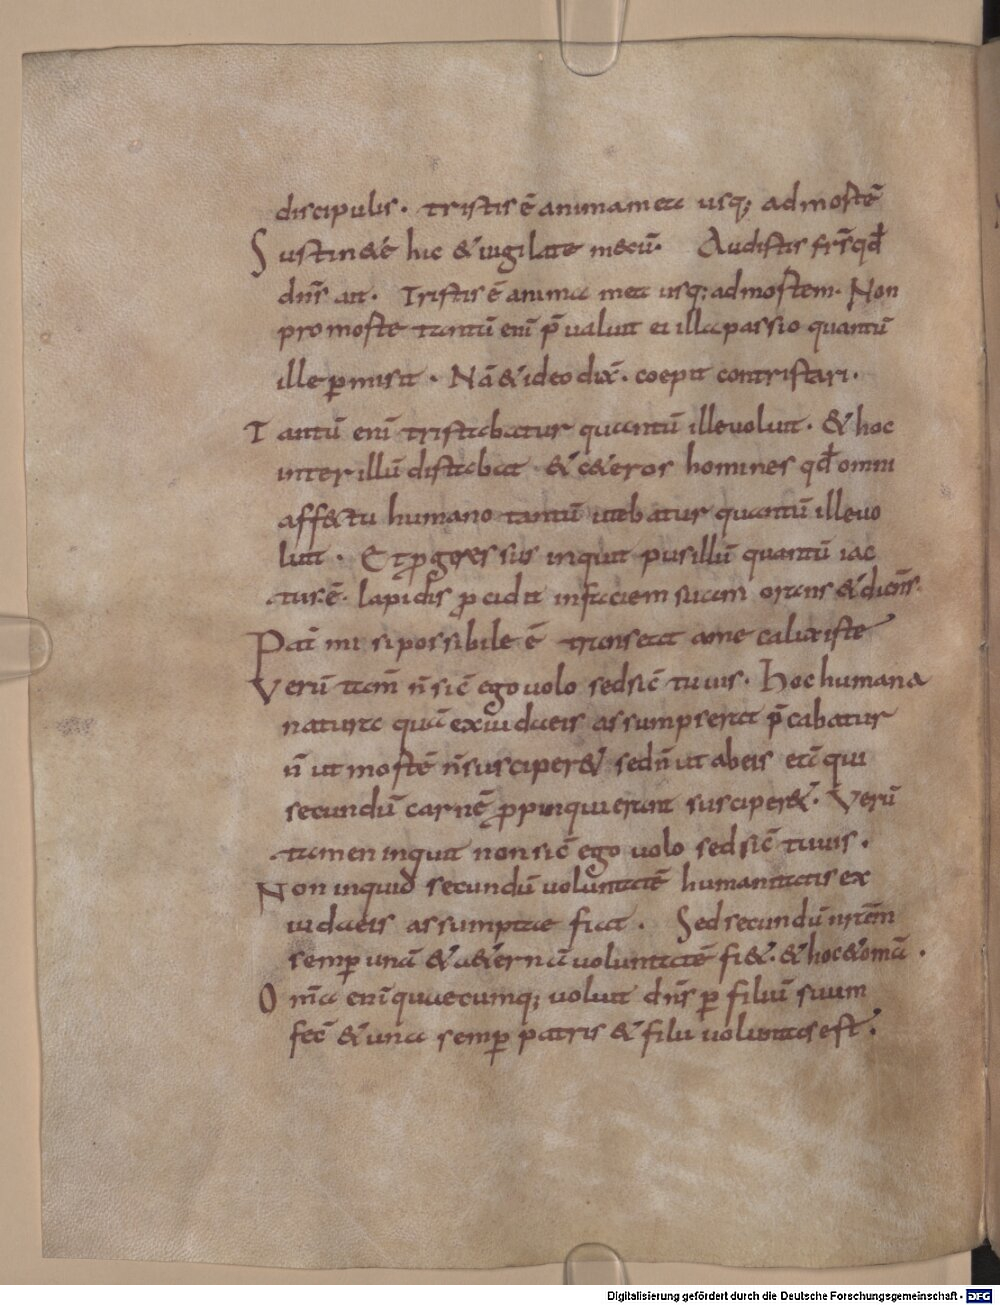 discipulis. tristis ē anima mea usq; ad mortē
Sustin&é hic & uigilate mecū. Audistis frs̄ qđ
dns̄ ait. Tristis ē anima mea usq; ad mortem. Non
pro morte tantū eni p̄ualuit ei illa passio quantū
ille p̱misit. Nā & ideo dix̄. coepit contristari.
Tantū eni tristabatur quantū ille uoluit. & hoc
inter illū distabat & c&eros homines qđ omni
aff&tu humano tantū utebatur quantū ille uo
luit. Et ꝓgressus inquit pusillū quantū iac
tus ē lapidis ꝓcidit in faciem suam orans & dicens̄.
Pat̄ mi si possibile ē transeat a me calix iste
Verū tam̄ n̄ sic̄ ego uolo sed sic̄ tu uis. Hoc humana
natura quā ex iudaeis assumpserat p̄cabatur
n̄ ut mortē n̄ susciper& sed n̄ ut ab eis etā qui
secundū carnē ꝓpinqui erant susciper&. Verū
tamen inquit non sic̄ ego uolo sed sic̄ tu uis.
Non inquid secundū uoluntatē humanitatis ex
iudaeis assumptae fiat. Sed secundū nr̄tēm
semp̱ unā & a&ernā uoluntatē fi&. & hoc & omā.
Omīa eni quaecumq; uoluit dns̄ p̱ filiū suum
fec̄ & una semp̱ patris & filii uoluntas est.
Digitalisierung gefördert durch die Deutsche Forschungsgemeinschaft - DFG